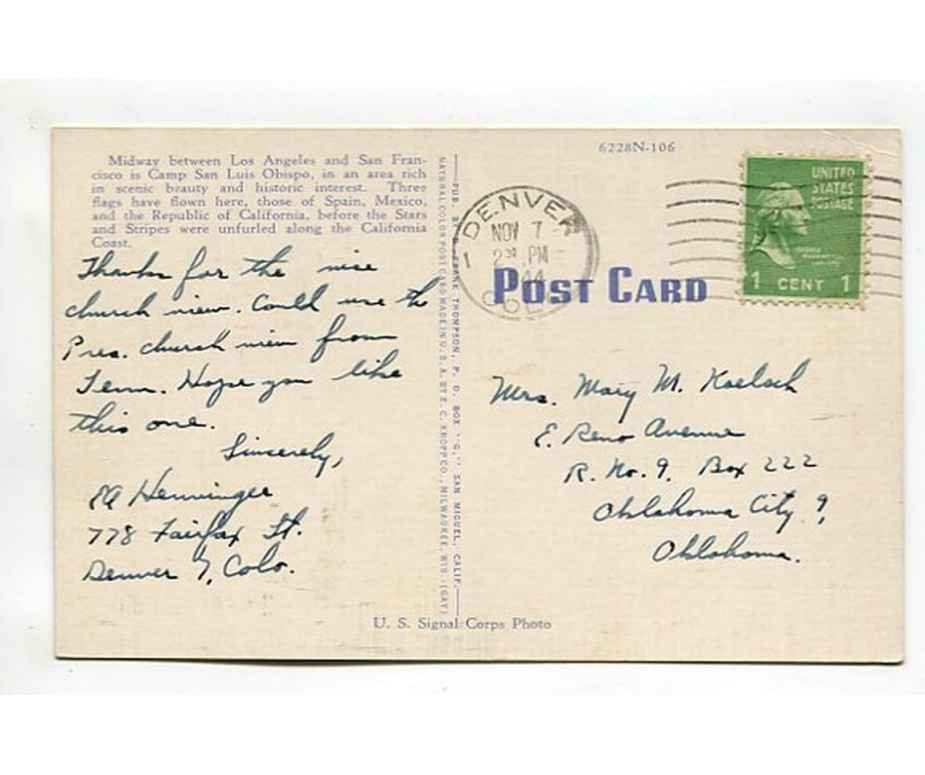 Midway between Los Angeles and San Fran-
cisco is Camp San Luis Obispo, in an area rich
in scenic beauty and historic interest. Three
flags have flown here, those of Spain, Mexico,
and the Republic of California, before the Stars
and Stripes were unfurled along the California
Coast.
Thanks for the nice
church view. Could use the
Pres. church view from
Tenn. Hope you like
this one.
Sincerely,
Henninger
778 Fairfax St.
Denver 7, Colo.
PUB. BY FRANK THOMPSON, P. O. BOX "G," SAN MIGUEL, CALIF.
NATURAL COLOR POST CARD MADE IN U. S. A. BY E. C. KROPP CO., MILWAUKEE, WIS.
6228N-106
DENVER
NOV 7
PM
44
COLO
UNITED
STATES
POSTAGE
1 CENT 1
POST CARD
Mrs. Mary M. Koelsch
E. Reno Avenue
R. No. 9, Box 222
Oklahoma City 9,
Oklahoma.
U. S. Signal Corps Photo